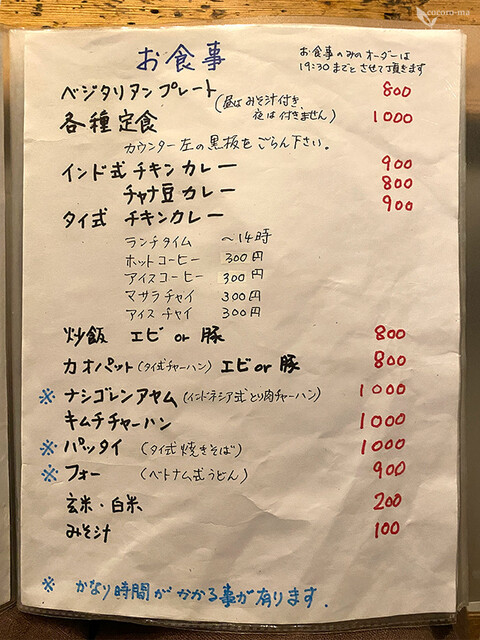 cucoro-ma
お食事
お食事のみのオーダーは
19:30までとさせて頂きます
ベジタリアンプレート (昼はみそ汁付き、 800
夜は付きません)
各種定食 1000
カウンター左の黒板をごらん下さい。
インド式チキンカレー 900
チャナ豆カレー 800
タイ式チキンカレー 900
ランチタイム 〜14時
ホットコーヒー 300円
アイスコーヒー 300円
マサラチャイ 300円
アイスチャイ 300円
炒飯 エビor豚 800
カオパット(タイ式チャーハン)エビor豚 800
※ ナシゴレンアヤム(インドネシア式とり肉チャーハン) 1000
キムチチャーハン 1000
※ パッタイ (タイ式焼きそば) 1000
※ フォー (ベトナム式うどん) 900
玄米・白米 200
みそ汁 100
※ かなり時間がかかる事が有ります.